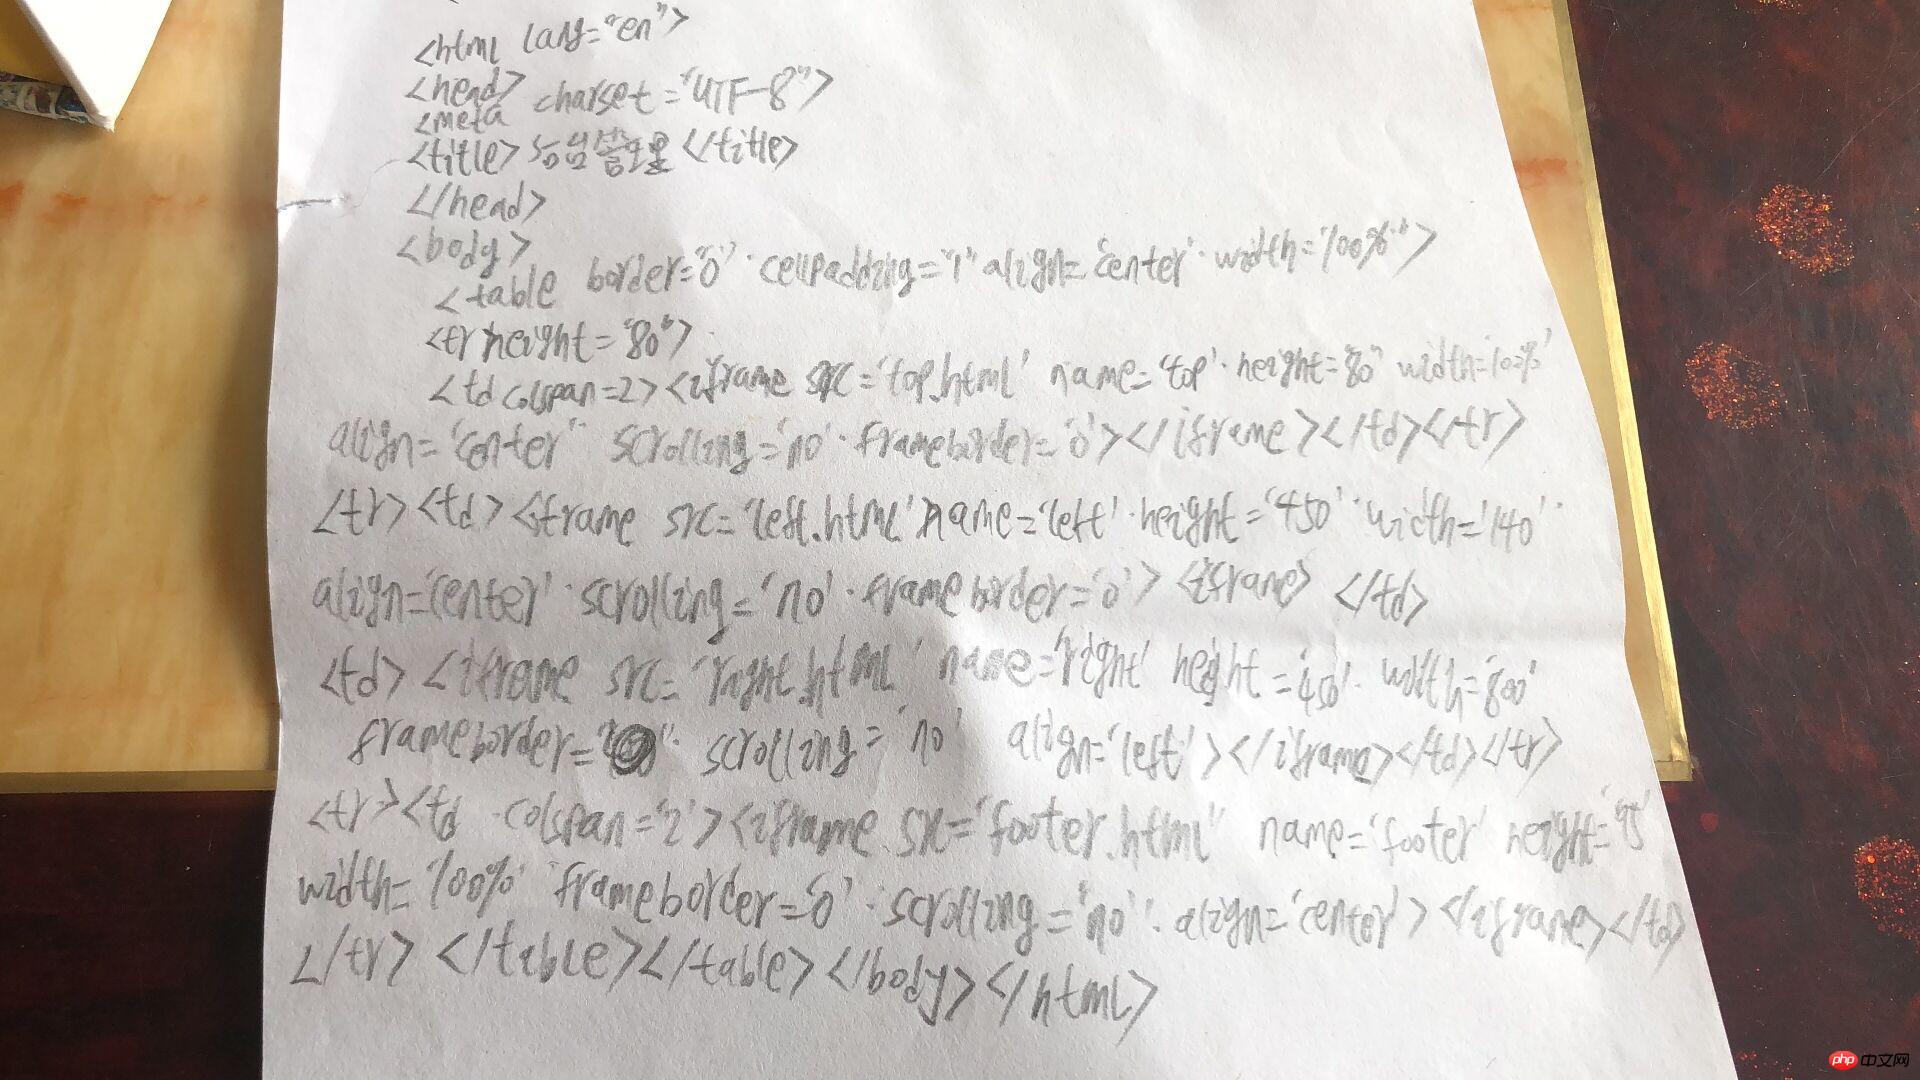 <html lang="en">
<head>
<meta charset="UTF-8">
<title> </title>
</head>
<body>
<table border="0" cellpadding="1" align='center' width='100%'>
<tr height="80">
<td colspan=2><iframe src='top.html' name='top' height='80' width='100%'
align='center' scrolling='no' frameborder='0'></iframe></td></tr>
<tr><td><iframe src='left.html' name='left' height='450' width='140'
align='center' scrolling='no' frameborder='0'> <iframe> </td>
<td> <iframe src='right.html' name='right' height='450' width='800'
frameborder= scrolling='no' align='left'></iframe></td></tr>
<tr><td colspan='2'><iframe src='footer.html" name='footer' height='95'
width='100%' frameborder='0' scrolling='no' align='center'></iframe></td>
</tr> </table></table></body></html>
php 中文网